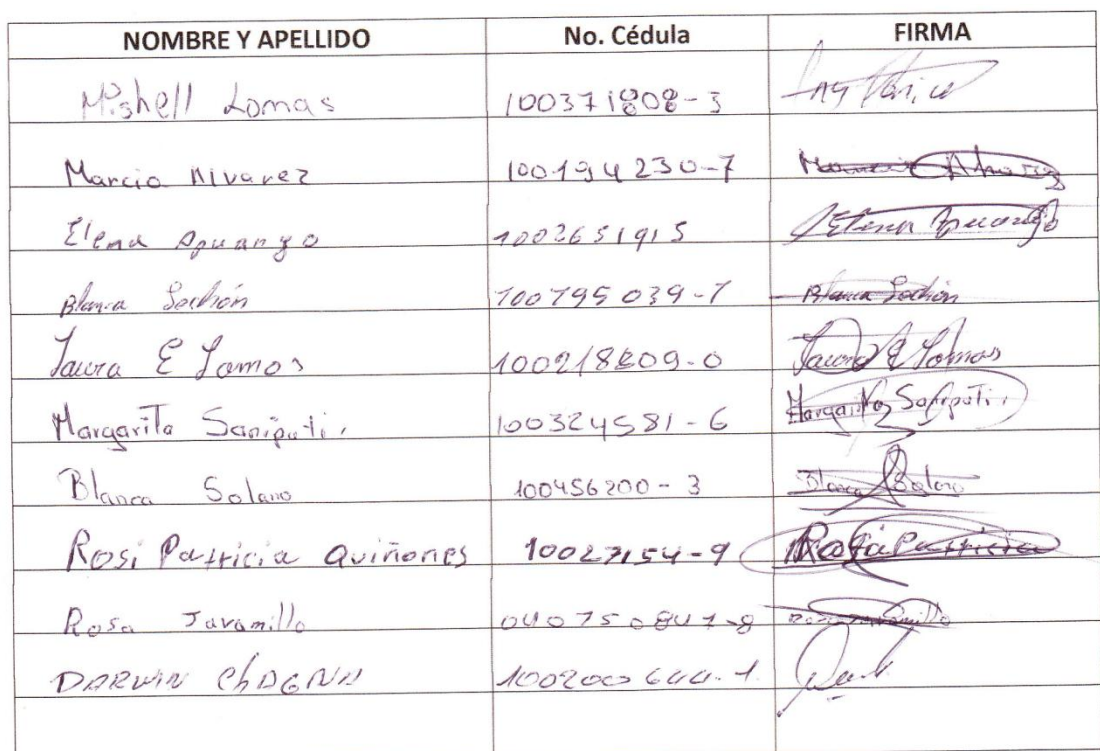 NOMBRE Y APELLIDO No. Cédula FIRMA
Mishell Lomas 100371808-3
Marcia Alvarez 100194230-7 Marcia Alvarez
Elena Apuango 1002651915 Elena Apuango
Blanca Sachón 100795039-7 Blanca Sachón
Laura E Lomas 100218809-0 Laura E Lomas
Margarita Sanipati. 100324581-6 Margarita Sanipati.
Blanca Solano 100456200-3 Blanca Solano
Rosi Patricia Quiñones 10027154-9 Patricia
Rosa Jaramillo Rosa Jaramillo
DARWIN